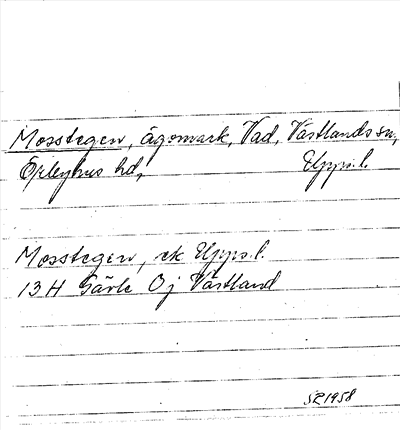 Mosstegen, ägomark, Vad, Västlands sn,
Örbyhus hd, Upps.l.
Mosstegen, ek Upps.l.
13 H Gävle Oj Västland
SZ 1958